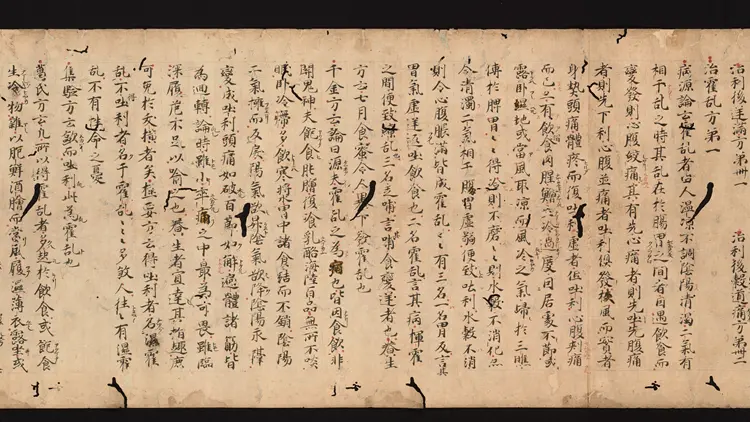 治利後逆満方第卌一　治利後穀道痛方第卌二
治霍乱方第一
病源論云霍乱者由人温凉不調陰陽清濁二氣有
相干乱之時其乱在於腸胃之間者因遇飲食而
変發則心腹絞痛其有先心痛者則先吐先腹痛
者則先下利心腹並痛者吐利倶發挟風而實者
身熱頭痛體疼而復吐利虚者但吐利心腹刺痛
而已亦有飲食肉腥鱠生冷過度因居處不節或
露卧濕地或當風取凉而風冷之氣歸於三焦
傳於脾胃〻〻得冷則不磨〻〻則水穀不消化亦
令清濁二氣相干脾胃虚弱便致吐利水穀不消
則令心腹脹満皆成霍乱〻〻有三名一名胃反言其
胃氣虚逆反吐飲食也二名霍乱言其病揮霍
之間便致乱三名走哺言哺食変逆者也養生
方云七月食蜜令人暴下發霍乱也
千金方云論曰源夫霍乱之為病也皆因食飲非
關鬼神夫飽食肫膾復湌乳酪海陸百品無所不噉
眠卧冷席多飲寒漿胃中諸食結而不銷陰陽
二氣擁而反戻陽氣欲升陰氣欲降陰陽乖隔
変成吐利頭痛如破百節如解遍體諸筋皆
為廻轉論時雖小卒痛之中最為可畏雖臨
深履危不足以喩之也養生者宜達其旨趣庶
可免於夭横者矣極要方云得吐利者名濕霍
乱不吐利者名干霍乱〻〻多敓人往〻有濕霍
乱不有性命之憂
集驗方云飲而吐利此為霍乱也
葛氏方云凡所以得霍乱者多起於飲食或飽食
生冷物雜以肥鮮酒膾而當風履濕薄衣露坐或